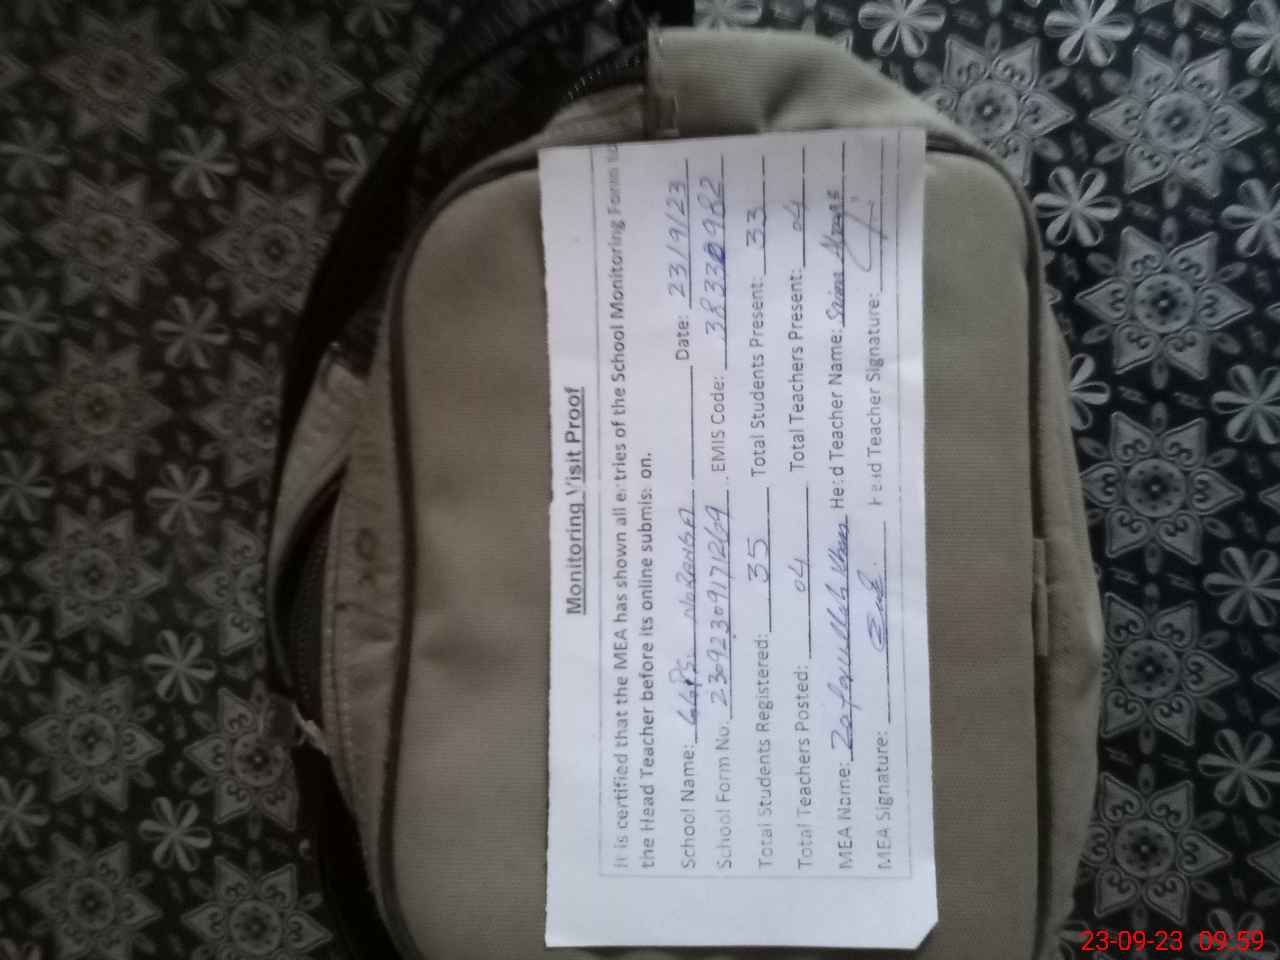 Monitoring Visit Proof
It is certified that the MEA has shown all entries of the School Monitoring Form to
the Head Teacher before its online submission.
School Name: GGPS NORANGA Date: 23/9/23
School Form No: 2309230917269 EMIS Code: 38330982
Total Students Registered: 35 Total Students Present: 33
Total Teachers Posted: 04 Total Teachers Present: 04
MEA Name: Zafarullah Khan Head Teacher Name:
MEA Signature: Head Teacher Signature:
23-09-23 09:59